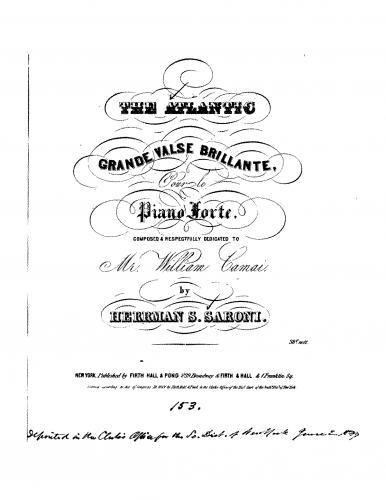 THE ATLANTIC
GRANDE VALSE BRILLANTE,
Pour le
Piano Forte.
COMPOSED & RESPECTFULLY DEDICATED TO
Mr. William Camai.
by
HERRMAN S. SARONI.
50 cts. nett.
NEW YORK, Published by FIRTH HALL & POND 239 Broadway & FIRTH & HALL & 1 Franklin Sq.
Entered according to Act of Congress by Firth Hall & Pond in the Clerks Office of the Dist. Court of the South Dist. of New York
153.
Deposited in the Clerks Office for the So. Dist. of New York June 2